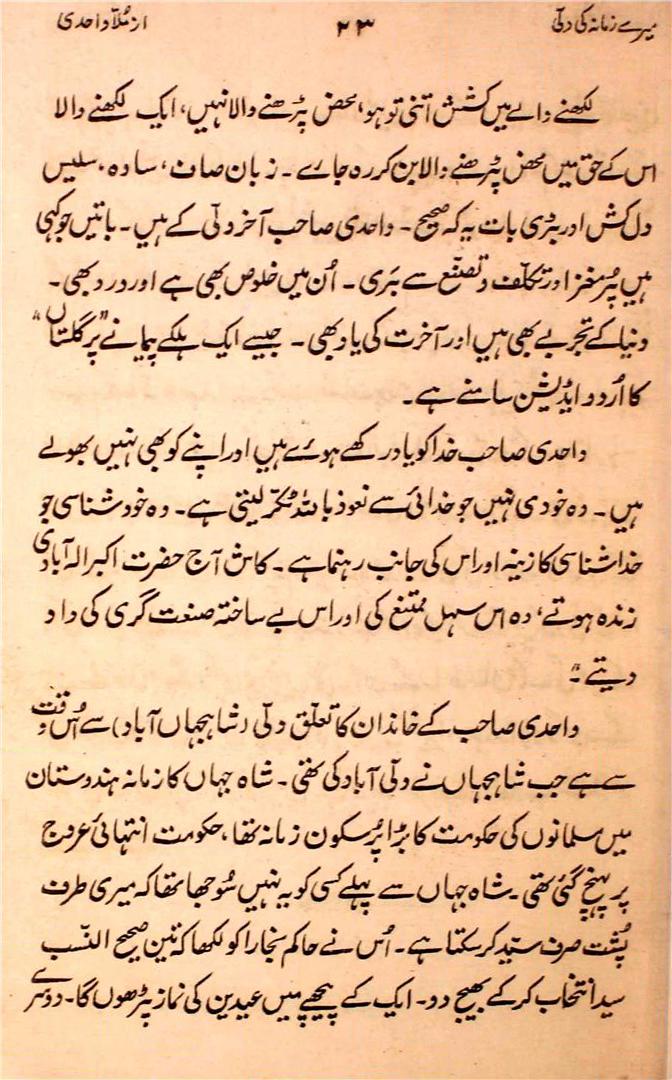 میرے زمانہ کی دلّی ۲۳ از مُلّا واحدی
لکھنے والے میں کشش اتنی تو ہو، محض پڑھنے والا نہیں، ایک لکھنے والا
اس کے حق میں محض پڑھنے والا بن کر رہ جائے۔ زبان صاف، سادہ، سلیس
دل کش اور بڑی بات یہ کہ صحیح۔ واحدی صاحب آخر دلّی کے ہیں۔ باتیں جو کہی
ہیں پُرمغز اور تکلّف و تصنّع سے بَری۔ اُن میں خلوص بھی ہے اور درد بھی۔
دنیا کے تجربے بھی ہیں اور آخرت کی یاد بھی۔ جیسے ایک ہلکے پیمانے پر "گلستاں"
کا اُردو ایڈیشن سامنے ہے۔
واحدی صاحب خدا کو یاد رکھے ہوئے ہیں اور اپنے کو بھی نہیں بھولے
ہیں۔ وہ خودی نہیں جو خدائی سے نعوذ باللہ ٹکّر لیتی ہے۔ وہ خود شناسی جو
خدا شناسی کا زینہ اور اس کی جانب رہنما ہے۔ کاش آج حضرت اکبر الہ آبادی
زندہ ہوتے، وہ اس سہل ممتنع کی اور اس بے ساختہ صنعت گری کی داد
دیتے"۔
واحدی صاحب کے خاندان کا تعلّق دلّی (شاہجہاں آباد) سے اُس وقت
سے ہے جب شاہجہاں نے دلّی آباد کی تھی۔ شاہ جہاں کا زمانہ ہندوستان
میں مسلمانوں کی حکومت کا بڑا پُرسکون زمانہ تھا، حکومت انتہائی عروج
پر پہنچ گئی تھی۔ شاہ جہاں سے پہلے کسی کو یہ نہیں سُوجھا تھا کہ میری طرف
پُشت صرف سیّد کر سکتا ہے۔ اُس نے حاکم بخارا کو لکھا کہ تین صحیح النّسب
سید انتخاب کر کے بھیج دو۔ ایک کے پیچھے میں عیدین کی نماز پڑھوں گا۔ دوسرے